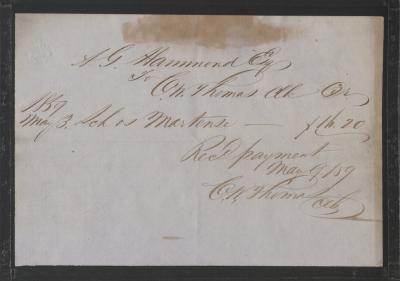 A G. Hammond Esq
To C. W. Thomas Clk Dr
1859
May 3. Sch os Martense — $16.20
Recd payment
May 9 / 59
C W Thomas Clk